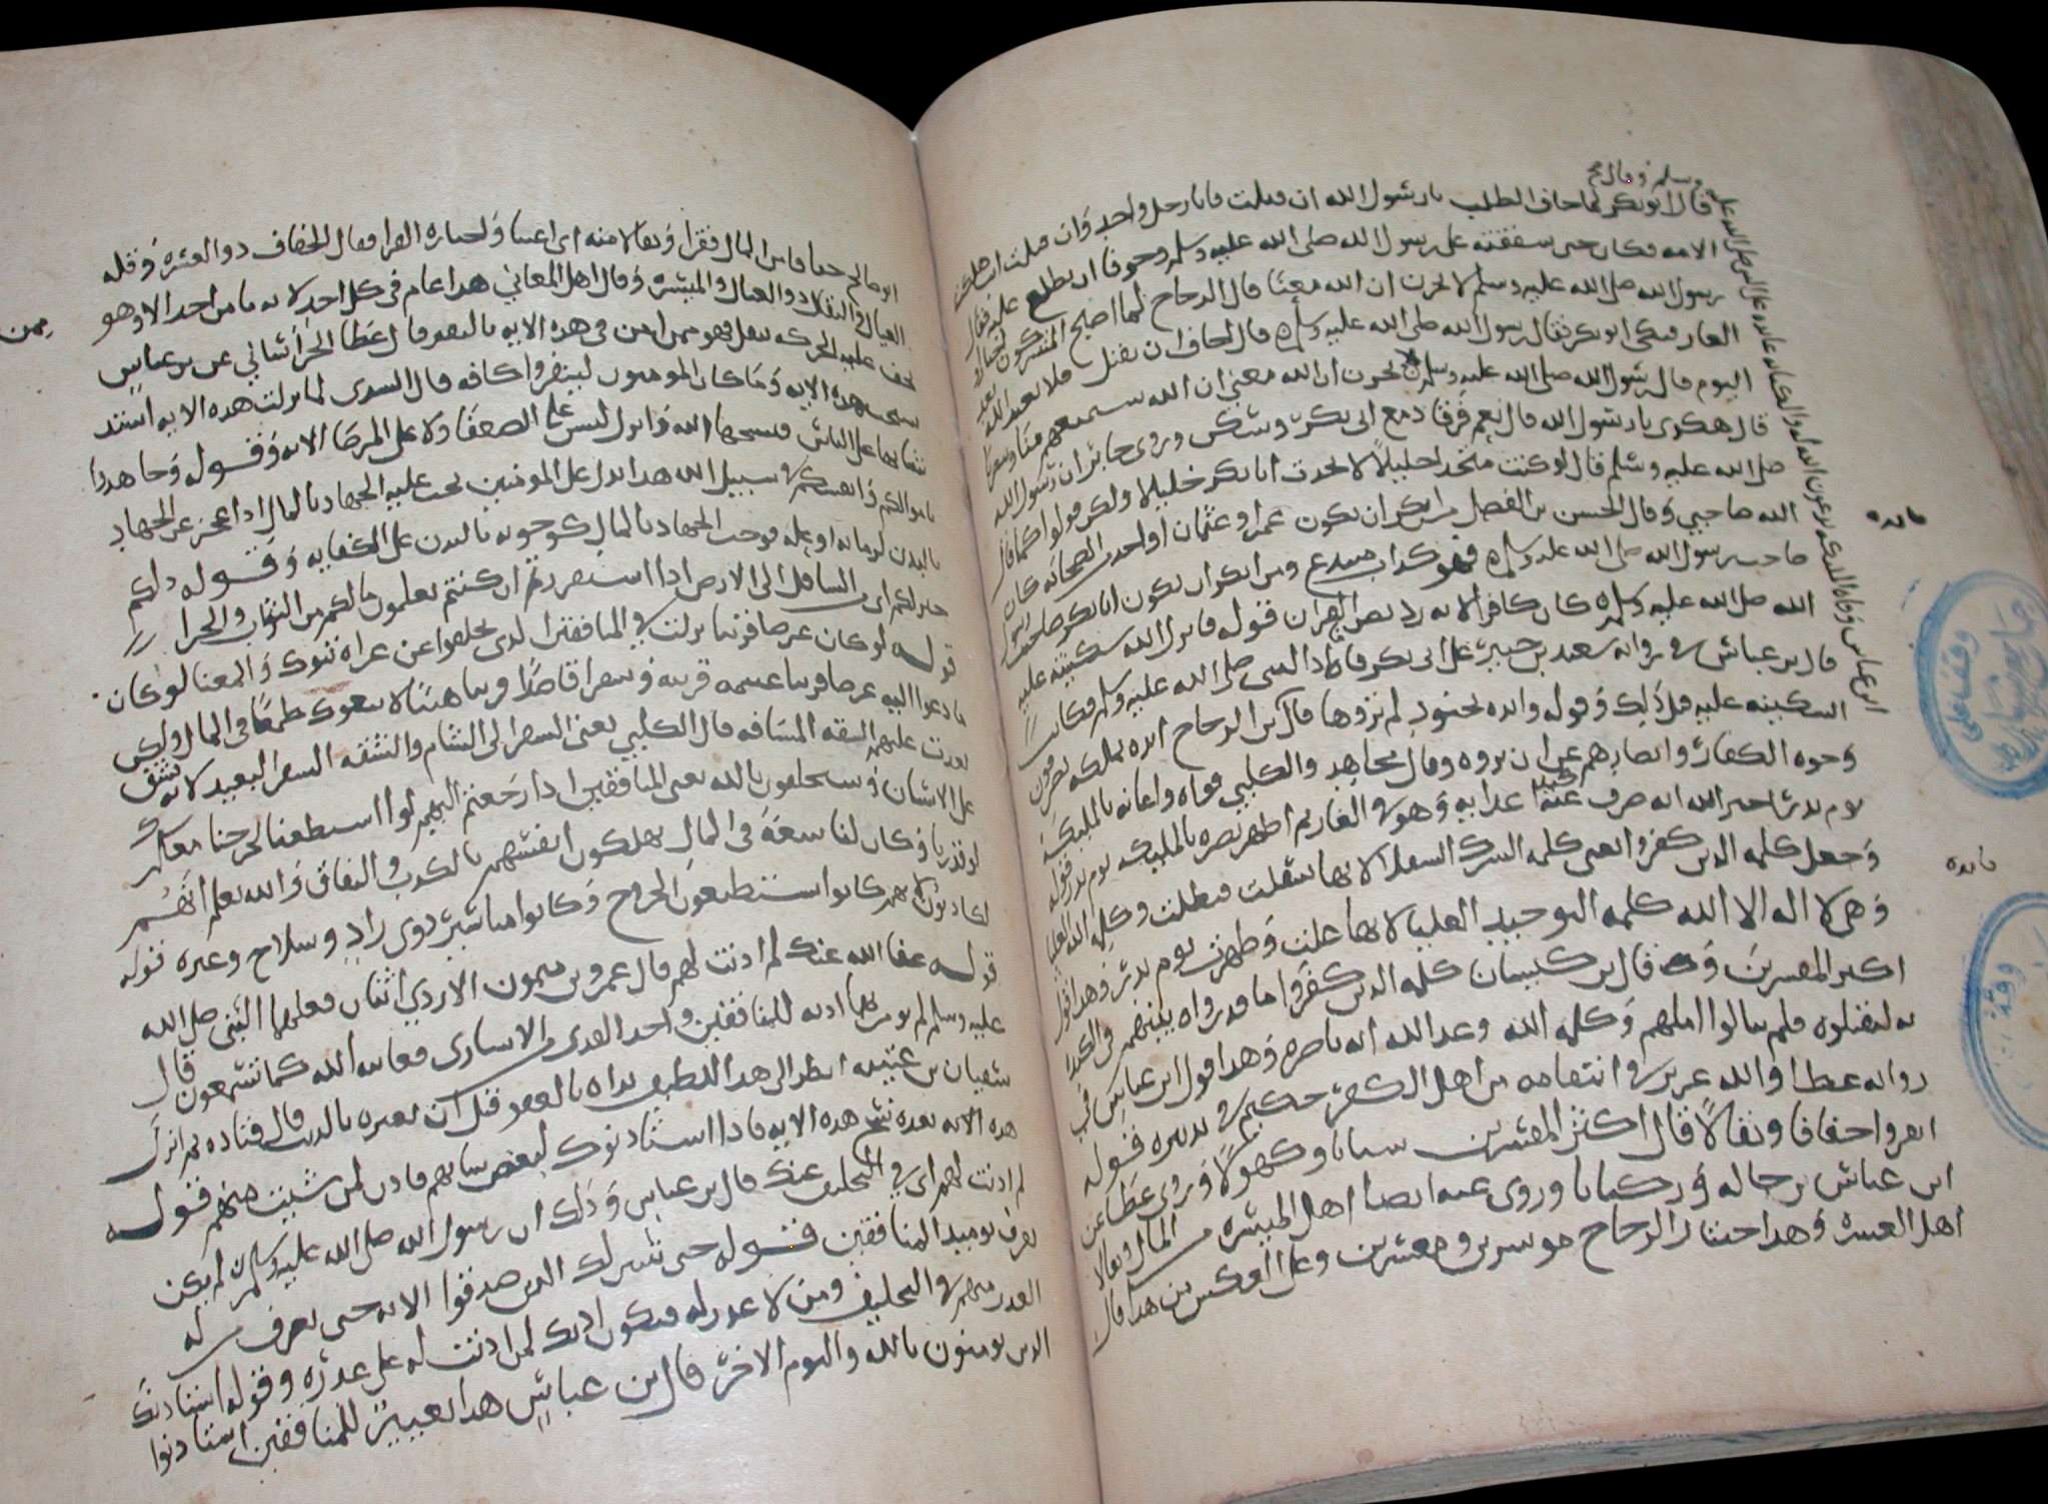 قال ابو بكر لما خاف الطلب يا رسول الله ان قتلت فانا رجل واحد وان قتلت انت هلكت
الامه فكان حزن شفقته على رسول الله صلى الله عليه وسلم وخوفا ان يطلع عليه فقال
رسول الله صلى الله عليه وسلم لا تحزن ان الله معنا قال الزجاج لما اصبح المشركون
الغار فبكى ابو بكر فقال رسول الله صلى الله عليه وسلم قال اخاف ان تقتل فلا يعبد الله بعد
اليوم قال رسول الله صلى الله عليه وسلم لا تحزن ان الله معنا ان الله سيمنعهم منا وينصرنا
قال هكذى يا رسول الله قال نعم فرقا دمع ابى بكر وسكن وروى جابر ان رسول الله
صلى الله عليه وسلم قال لو كنت متخدا خليلاً لاتخدت ابا بكر خليلا ولكن قولوا كما قال
الله صاحبي وقال الحسن بن الفضل من انكر ان يكون عمر او عثمان او احد من الصحابه كان
صاحب رسول الله صلى الله عليه وسلم فهو كداب مبتدع ومن انكر ان يكون ابا بكر صاحب رسول
الله صلى الله عليه وسلم كان كافرا لانه رد نص القران قوله فانزل الله سكينته عليه
قال بن عباس في روايه سعيد بن جبير على ابى بكر فاما النبى صلى الله عليه وسلم فكانت
السكينه عليه قبل ذلك وقوله وايده بجنود لم تروها قال بن الزجاج ايده بملكه يصرفون
وجوه الكفار وابصارهم عن ان يروه وقال مجاهد والكلبي قواه واعانه بالمليكه
يوم بدر اخبر الله انه صرف عنه كيد اعدايه وهو في الغار ثم اظهر نصره بالمليكه يوم بدر قوله
وجعل كلمه الدين كفروا يعنى كلمه الشرك السفلا لانها سفلت فبطلت وكلمه الله العليا
وهى لا اله الا الله كلمه التوحيد العليا لانها علت وظهرت يوم بدر وهدا قول
اكثر المفسرين وقال بن كيسان كلمه الدين كفروا ما قدرواه بينهم في الكيد
به ليقتلوه فلم ينالوا املهم وكلمه الله وعد الله انه ناصره وهدا قول ابن عباس في
روايه عطا والله عزيز في انتقامه من اهل الكفر حكيم في تدبيره قوله
انفروا خفافا وثقالاً قال اكثر المفسرين شبانا وكهولاً وروى عطا عن
ابن عباس رجاله وركبانا وروى عنه ايضا اهل الميسره من المال وثقالا
اهل العسره وهدا اختيار الزجاج موسرين ومعسرين وعلى العكس من هدا قال
فايده
فايده
ابو صالح خفافا من المال فقرا وثقالا منه اى اغنيا واختاره الفرا فقال الخفاف دوو العسره وقله
العيال والثقال دوو العيال والميسره وقال اهل المعاني هدا عام في كل احد لانه ما من احد الا وهو ممن
تخف عليه الحركه او تثقل فهو ممن امر في هده الايه بالنفير قال عطا الخراساني عن بن عباس
نسخت هده الايه وما كان المومنون لينفروا كافه قال السدى لما نزلت هده الايه اشتد
شانها على الناس فنسخها الله وانزل ليس على الضعفا ولا على المرضا الايه وقوله وجاهدوا
باموالكم وانفسكم في سبيل الله هدا يدل على المومنين يجب عليه الجهاد بالمال ادا عجز عن الجهاد
بالبدن لزمانه او عله فوجب الجهاد بالمال كوجوبه بالبدن على الكفايه وقوله دلكم
خير لكم اى من التثاقل الى الارض ادا استنفرتم ان كنتم تعلمون ما لكم من الثواب والجزا
قوله لو كان عرضا قريبا نزلت في المنافقين الدى تخلفوا عن غزاه تبوك والمعنا لو كان
ما دعوا اليه عرضا قريبا غنيمه قريبه وسفرا قاصدًا قريبا هينا لاتبعوك طمعًا في المال ولكن
بعدت عليهم الشقه المسافه قال الكلبي يعنى السفر الى الشام والشقه السفر البعيد لانه تشق
على الانسان وسيحلفون بالله يعنى المنافقين ادا رجعتم اليهم لو استطعنا لخرجنا معكم
لو قدرنا وكان لنا سعة في المال يهلكون انفسهم بالكدب والنفاق والله يعلم انهم
لكادبون لانهم كانوا استطيعون الخروج وكانوا مياسير دوى زاد وسلاح وغيره قوله
قوله عفا الله عنك لم ادنت لهم قال عمرو بن ميمون الازدي اثنان فعلهما النبى صلى الله
عليه وسلم لم يومر بهما ادنه للمنافقين واخد الفدى من الاسارى فعاتبه الله كما تسمعون قال
سفيان بن عيينه انظر الى هدا اللطيف بداه بالعفو قبل ان يعيره بالدنب قال قتاده ثم انزل
هده الايه بعده نسخ هده الايه فادا استادنوك لبعض شانهم فادن لمن شيت منهم قوله
لم ادنت لهم اى في التخلف عنك قال بن عباس ودلك ان رسول الله صلى الله عليه وسلم لم يكن
يعرف يوميد المنافقين قوله حتى يتبين لك الدين صدقوا الايه حتى تعرف من له
العدر منهم في التخليف ومن لا عدر له فيكون ادنك لمن ادنت له على عدره وقوله لا يستادنك
الدين يومنون بالله واليوم الاخر قال بن عباس هدا تعيير للمنافقين استادنوا